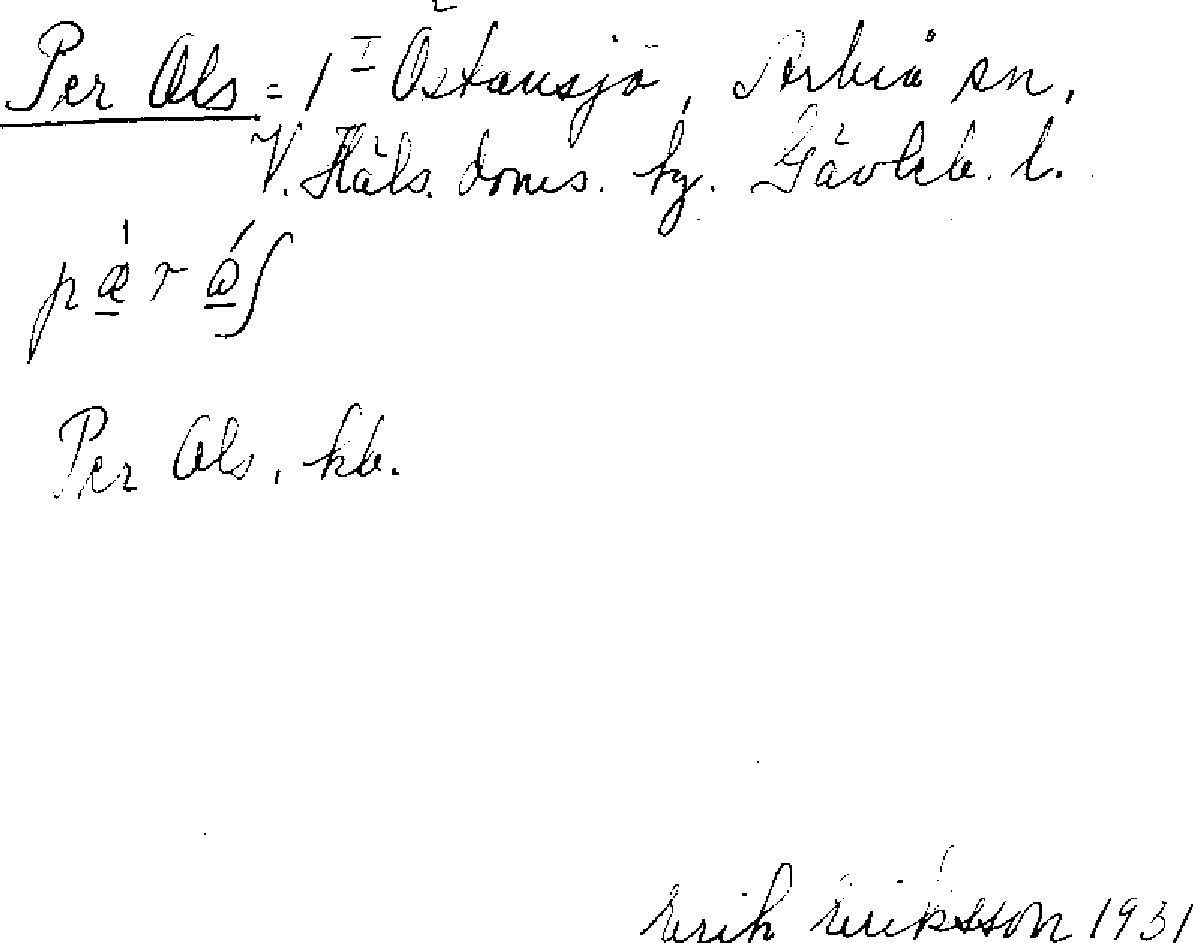 Per Ols = 1 I Östansjö, Arbrå sn,
V. Häls. doms. hg. Gävleb. l.
pær
Per Ols, kb.
Erik Eriksson 1931